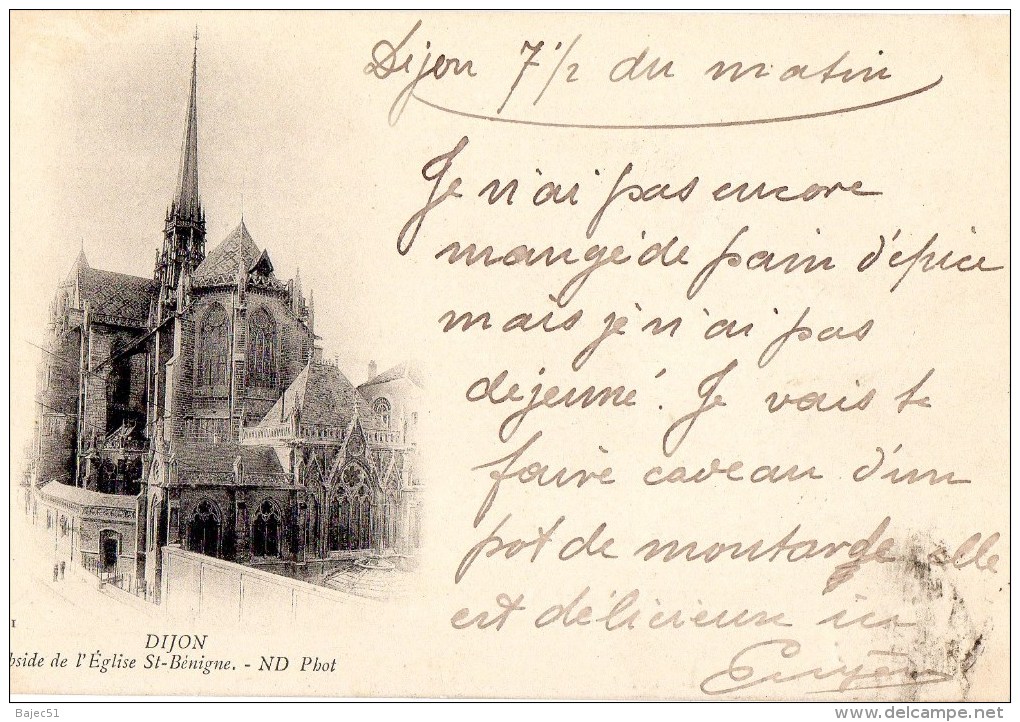 Dijon 7 1/2 du matin
Je n'ai pas encore
mangé de pain d'épice
mais je n'ai pas
dejeuné. Je vais te
faire caveau d'un
pot de moutarde elle
est délicieuse ici
1
DIJON
bside de l'Église St-Bénigne. - ND Phot
Bajec51
http://www.delcampe.net